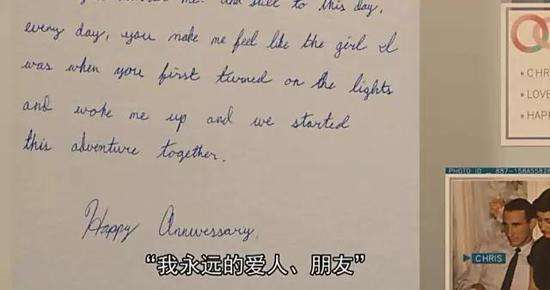 me. and still to this day,
every day, you make me feel like the girl I
was when you first turned on the lights
and woke me up and we started
this adventure together.
Happy Anniversary,
“我永远的爱人、朋友”
• CHR
• LOVE
• HAP
PHOTO ID
CHRIS